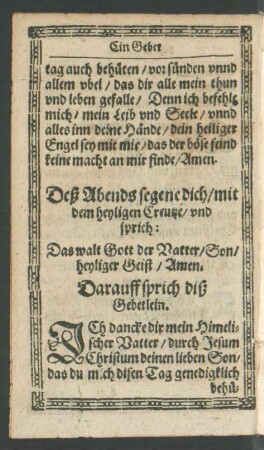 Ein Gebet
tag auch behüten/ vor sünden vnnd
allem vbel/ das dir alle mein thun
vnd leben gefalle/ Denn ich befehle
mich/ mein Leib vnd Seele/ vnnd
alles inn deine Hände/ dein heiliger
Engel sey mit mir/ das der böse feind
keine macht an mir finde/ Amen.
Deß Abends segene dich/ mit
dem heyligen Creutze/ vnd
sprich:
Das walt Gott der Vatter/ Son/
heyliger Geist/ Amen.
Darauff sprich diß
Gebetlein.
ICh dancke dir mein Himeli-
scher Vatter/ durch Jesum
Christum deinen lieben Son/
das du mich disen Tag genedigklich
behü-